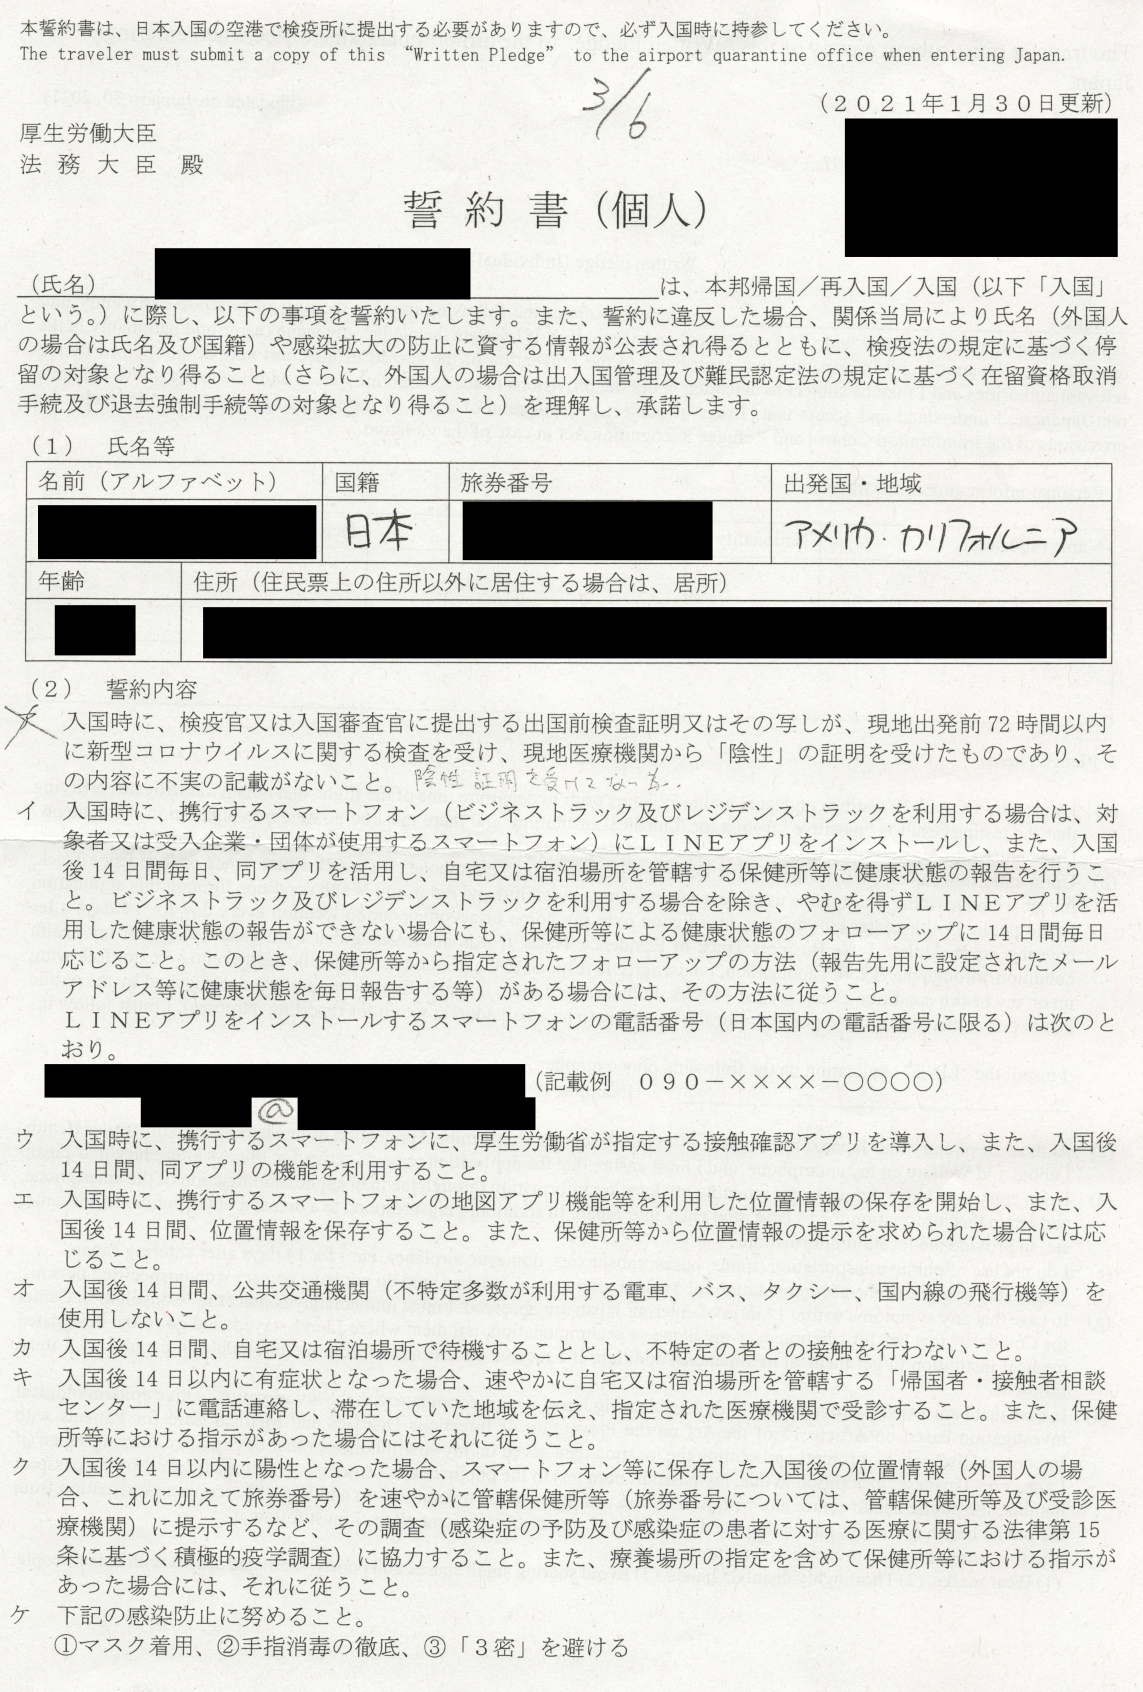 本誓約書は、日本入国の空港で検疫所に提出する必要がありますので、必ず入国時に持参してください。
The traveler must submit a copy of this “Written Pledge” to the airport quarantine office when entering Japan.
3/6
（２０２１年１月３０日更新）
厚生労働大臣
法 務 大 臣 殿
誓 約 書（個人）
（氏名） は、本邦帰国／再入国／入国（以下「入国」
という。）に際し、以下の事項を誓約いたします。また、誓約に違反した場合、関係当局により氏名（外国人
の場合は氏名及び国籍）や感染拡大の防止に資する情報が公表され得るとともに、検疫法の規定に基づく停
留の対象となり得ること（さらに、外国人の場合は出入国管理及び難民認定法の規定に基づく在留資格取消
手続及び退去強制手続等の対象となり得ること）を理解し、承諾します。
（１） 氏名等
名前（アルファベット） 国籍 旅券番号 出発国・地域
日本 アメリカ・カリフォルニア
年齢 住所（住民票上の住所以外に居住する場合は、居所）
（２） 誓約内容
ア 入国時に、検疫官又は入国審査官に提出する出国前検査証明又はその写しが、現地出発前 72 時間以内
に新型コロナウイルスに関する検査を受け、現地医療機関から「陰性」の証明を受けたものであり、そ
の内容に不実の記載がないこと。陰性証明を受けてない為。
イ 入国時に、携行するスマートフォン（ビジネストラック及びレジデンストラックを利用する場合は、対
象者又は受入企業・団体が使用するスマートフォン）にＬＩＮＥアプリをインストールし、また、入国
後 14 日間毎日、同アプリを活用し、自宅又は宿泊場所を管轄する保健所等に健康状態の報告を行うこ
と。ビジネストラック及びレジデンストラックを利用する場合を除き、やむを得ずＬＩＮＥアプリを活
用した健康状態の報告ができない場合にも、保健所等による健康状態のフォローアップに 14 日間毎日
応じること。このとき、保健所等から指定されたフォローアップの方法（報告先用に設定されたメール
アドレス等に健康状態を毎日報告する等）がある場合には、その方法に従うこと。
ＬＩＮＥアプリをインストールするスマートフォンの電話番号（日本国内の電話番号に限る）は次のと
おり。
（記載例 ０９０－××××－○○○○）
@
ウ 入国時に、携行するスマートフォンに、厚生労働省が指定する接触確認アプリを導入し、また、入国後
14 日間、同アプリの機能を利用すること。
エ 入国時に、携行するスマートフォンの地図アプリ機能等を利用した位置情報の保存を開始し、また、入
国後 14 日間、位置情報を保存すること。また、保健所等から位置情報の提示を求められた場合には応
じること。
オ 入国後 14 日間、公共交通機関（不特定多数が利用する電車、バス、タクシー、国内線の飛行機等）を
使用しないこと。
カ 入国後 14 日間、自宅又は宿泊場所で待機することとし、不特定の者との接触を行わないこと。
キ 入国後 14 日以内に有症状となった場合、速やかに自宅又は宿泊場所を管轄する「帰国者・接触者相談
センター」に電話連絡し、滞在していた地域を伝え、指定された医療機関で受診すること。また、保健
所等における指示があった場合にはそれに従うこと。
ク 入国後 14 日以内に陽性となった場合、スマートフォン等に保存した入国後の位置情報（外国人の場
合、これに加えて旅券番号）を速やかに管轄保健所等（旅券番号については、管轄保健所等及び受診医
療機関）に提示するなど、その調査（感染症の予防及び感染症の患者に対する医療に関する法律第 15
条に基づく積極的疫学調査）に協力すること。また、療養場所の指定を含めて保健所等における指示が
あった場合には、それに従うこと。
ケ 下記の感染防止に努めること。
①マスク着用、②手指消毒の徹底、③「３密」を避ける